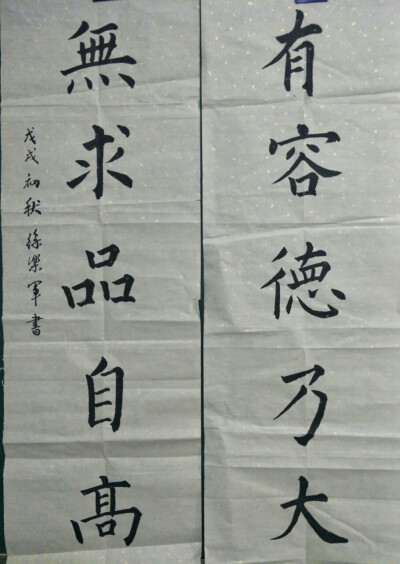 有容德乃大
無求品自高
戊戌初秋徐樂軍書